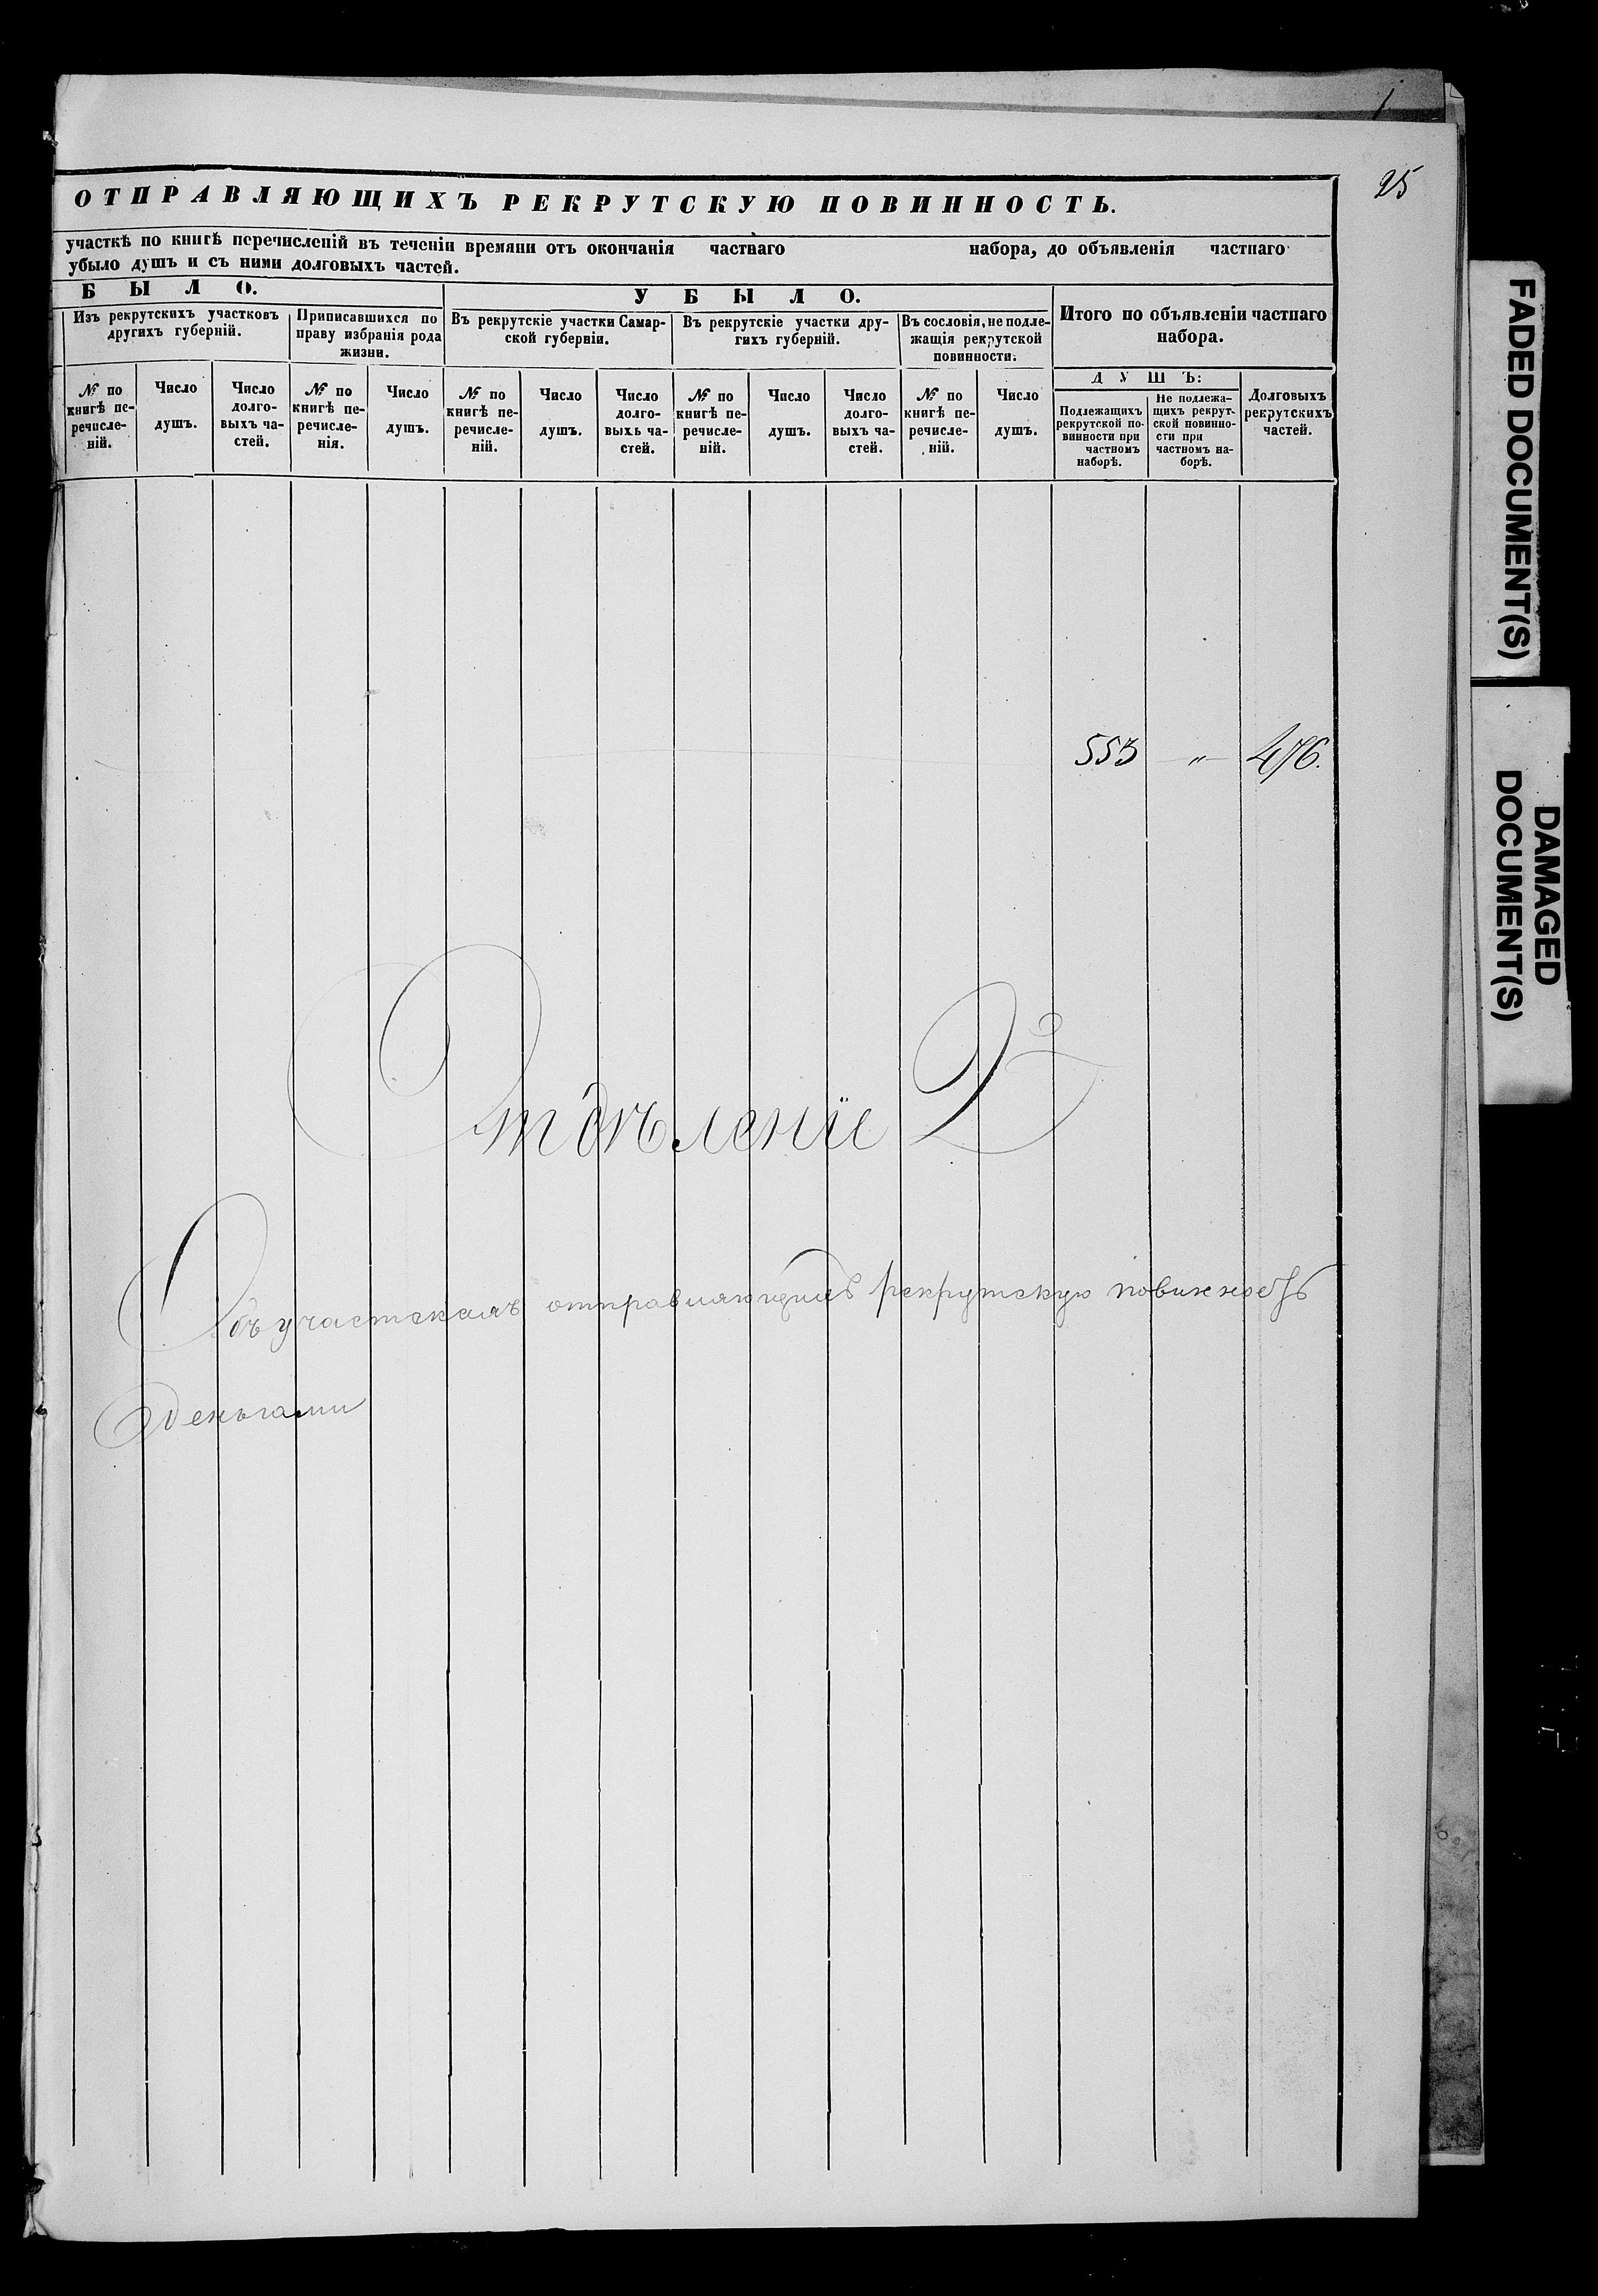 25
ОТПРАВЛЯЮЩИХЪ РЕКРУТСКУЮ ПОВИННОСТЬ.
участкѣ по книгѣ перечисленій въ теченіи времяни отъ окончанія частнаго набора, до объявленія частнаго
убыло душъ и съ ними долговыхъ частей.
БЫЛО.
УБЫЛО.
Итого по объявленіи частнаго
набора.
Изъ рекрутскихъ участковъ
другихъ губерній.
Приписавшихся по
праву избранія рода
жизни.
Въ рекрутскіе участки Самар-
ской губерніи.
Въ рекрутскіе участки дру-
гихъ губерній.
Въ сословія, не подле-
жащія рекрутской
повинности.
ДУШЪ:
№ по
книгѣ пе-
речисле-
ній.
Число
душъ.
Число
долго-
выхъ ча-
стей.
№ по
книгѣ пе-
речисле-
нія.
Число
душъ.
№ по
книгѣ пе-
речисле-
ній.
Число
душъ.
Число
долго-
выхъ ча-
стей.
№ по
книгѣ пе-
речисле-
ній.
Число
душъ.
Число
долго-
выхъ ча-
стей.
№ по
книгѣ пе-
речисле-
ній.
Число
душъ.
Подлежащихъ
рекрутской по-
винности при
частномъ
наборѣ.
Не подлежа-
щихъ рекрут-
ской повинно-
сти при
частномъ на-
борѣ.
Долговыхъ
рекрутскихъ
частей.
553 - „ - 476.
Отдѣленіе 2
Объ участкахъ отправляющихъ рекрутскую повинность
деньгами
FADED DOCUMENT(S)
DAMAGED
DOCUMENT(S)